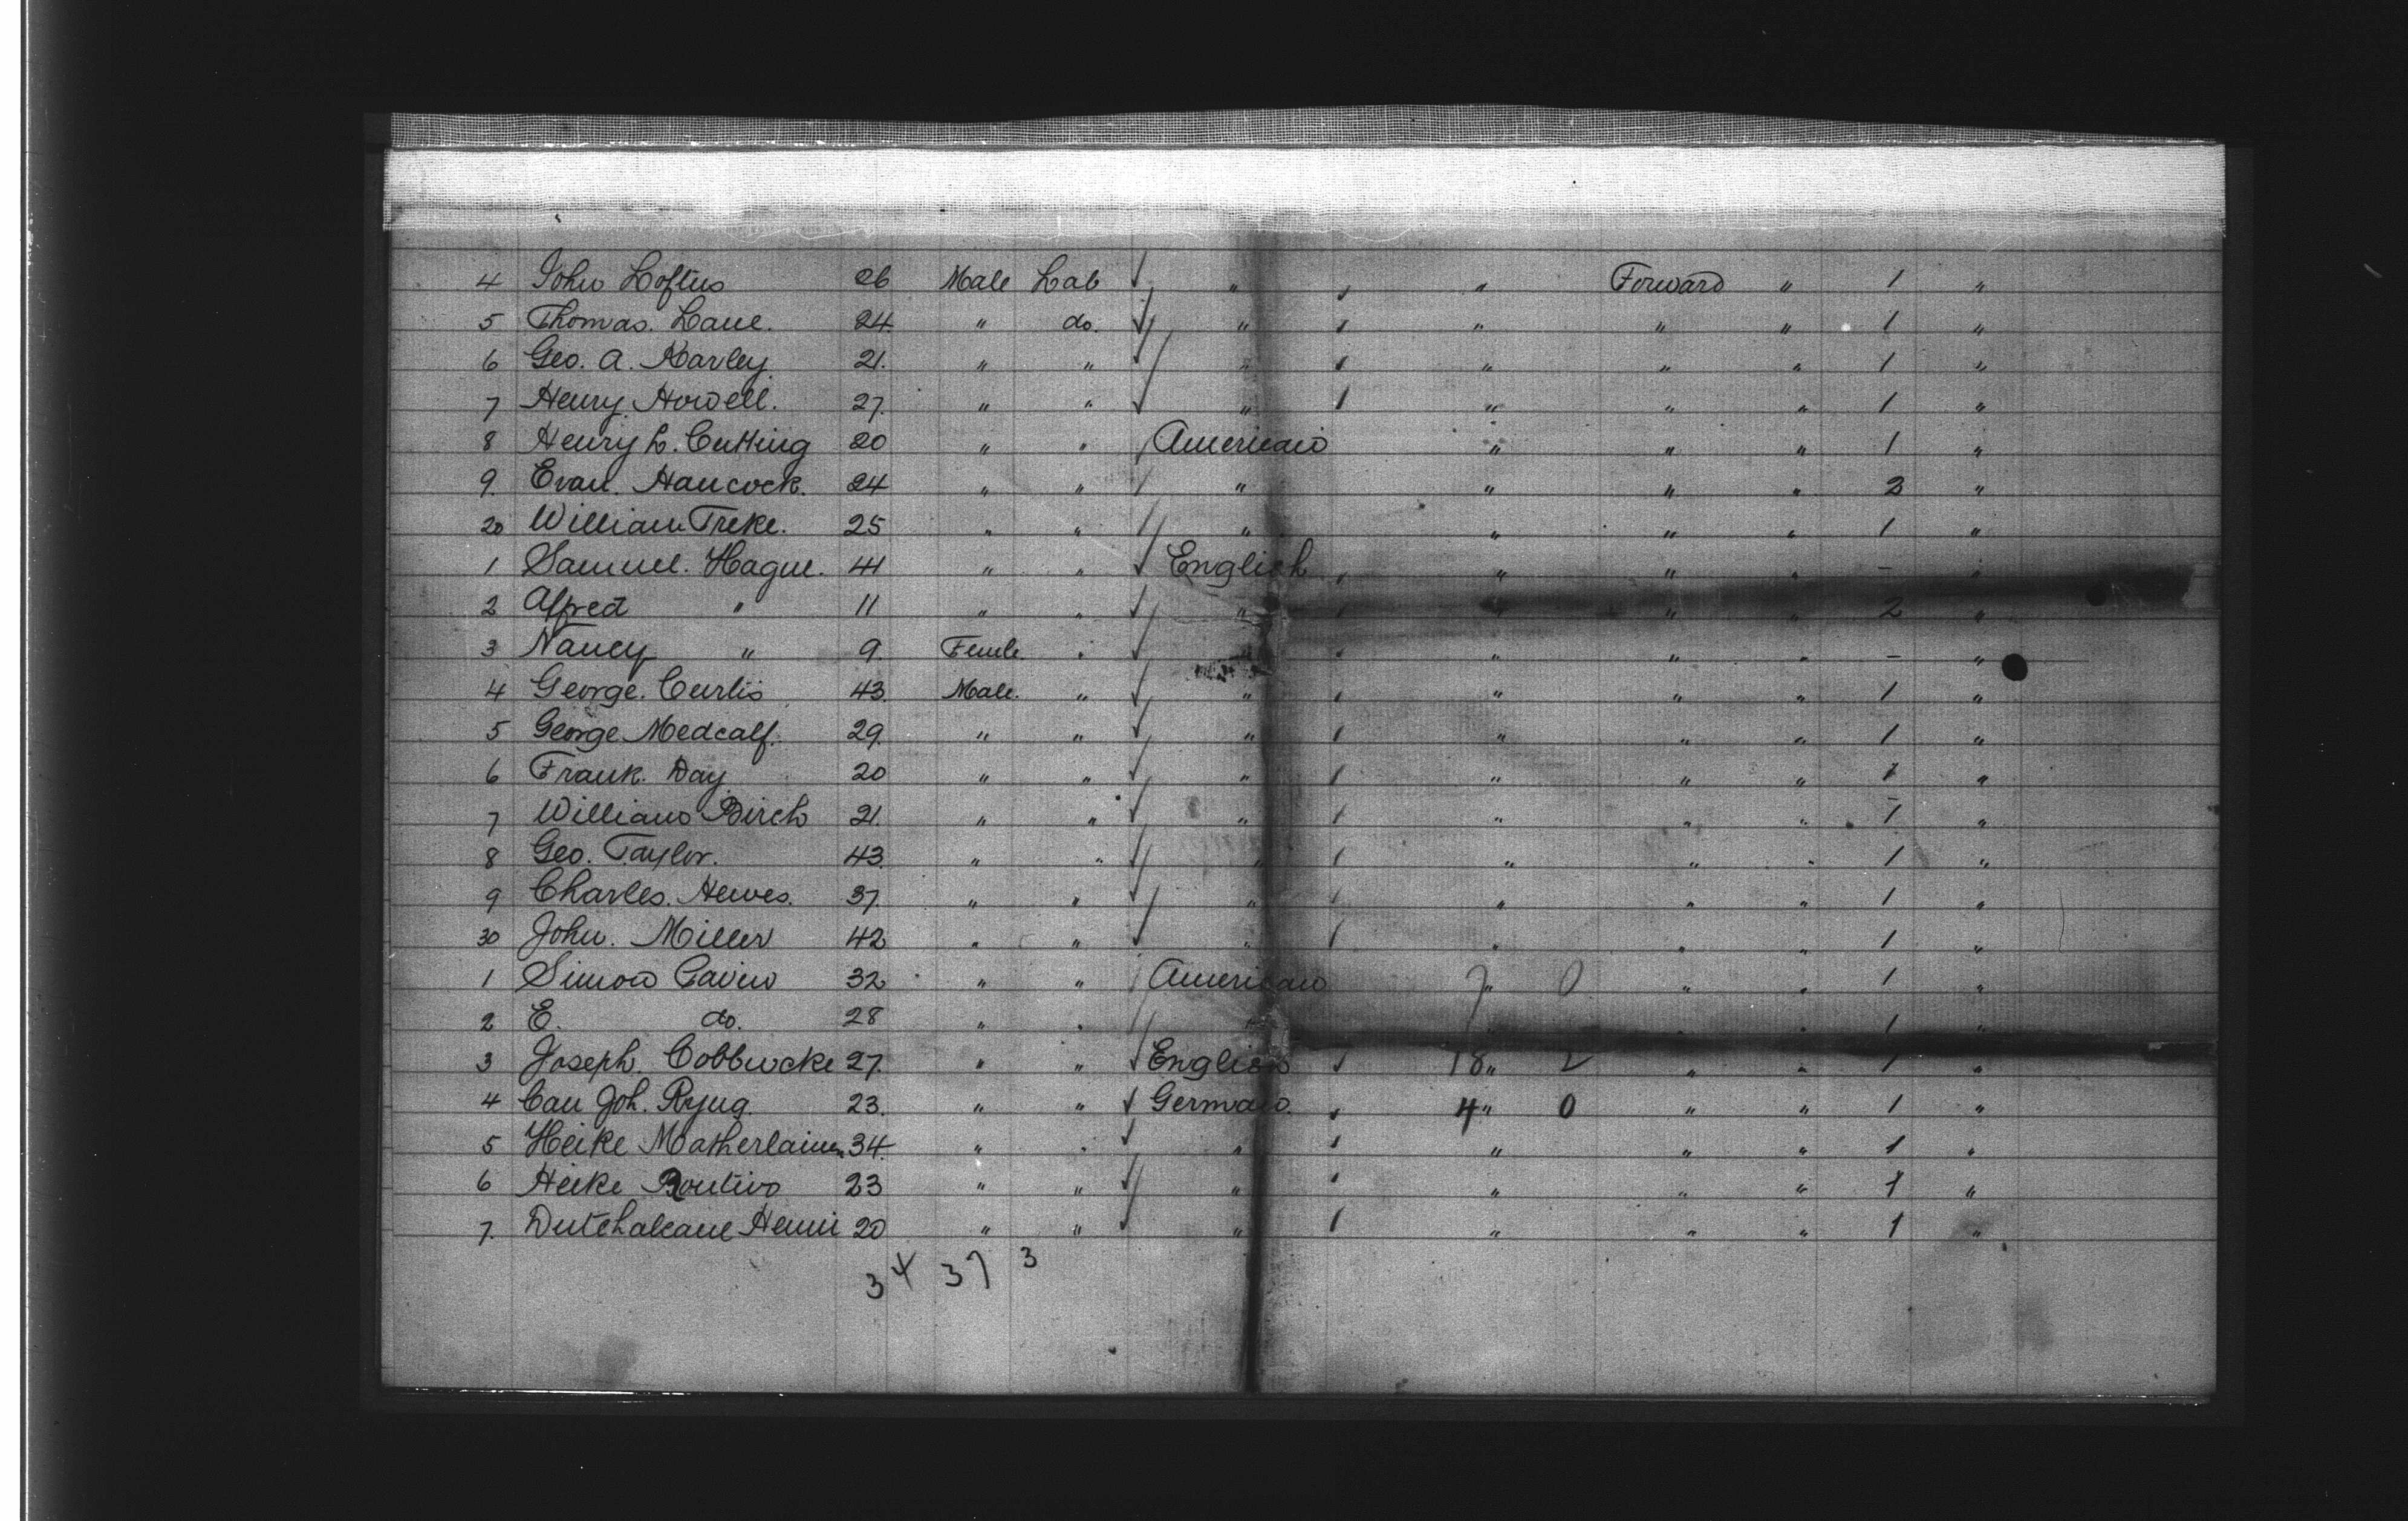 4 John Loftus 26 Male Lab ✓ " " Forward " 1 "
5 Thomas. Lane. 24 " do. ✓ " " " " 1 "
6 Geo. A. Karley 21. " " ✓ " " " " 1 "
7 Henry Howell. 27. " " ✓ " " " " 1 "
8 Henry L. Cutting 20 " " American " " " 1 "
9. Evan. Hancock. 24 " " " " " " 2 "
20 William Treke. 25 " " " " " " 1 "
1 Samuel. Hague. 41 " " ✓ English " " " - "
2 Alfred " 11 " " ✓ " " " " 2 "
3 Nancy " 9. Femle. " ✓ " " " - "
4 George. Curtis 43. Male. " ✓ " " " " 1 "
5 George Medcalf. 29. " " ✓ " " " " 1 "
6 Frank. Day 20 " " ✓ " " " " 1 "
7 William Birch 21. " " ✓ " " " " 1 "
8 Geo. Taylor. 43. " " ✓ " " " " 1 "
9 Charles. Hewes. 37. " " ✓ " " " " 1 "
30 John. Miller 42 " " ✓ " " " " 1 "
1 Simon Cavin 32 " " American 7 " 0 " " 1 "
2 E. do. 28 " " " " " " 1 "
3 Joseph. 27. " " ✓ English 18 " 2 " " 1 "
4 Joh. 23. " " ✓ German. 4 " 0 " " 1 "
5 Heike 34. " " ✓ " " " " 1 "
6 Heike 23 " " ✓ " " " " 1 "
7. 20 " " ✓ " " " " 1 "
34 37 3